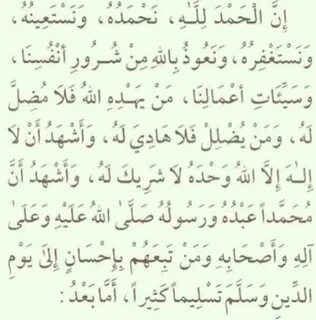 إِنَّ الْحَمْدَ لِلَّـهِ، نَحْمَدُهُ، وَنَسْتَعِينُهُ،
وَنَسْتَغْفِرُهُ، وَنَعُوذُ بِاللهِ مِنْ شُـرُورِ أَنْفُسِنَا،
وَسَيِّئَاتِ أَعْمَالِنَا، مَنْ يَهْـدِهِ اللهُ فَلَا مُضِلَّ
لَهُ، وَمَنْ يُضْلِلْ فَلَا هَادِيَ لَهُ، وَأَشْهَدُ أَنْ لَا
إِلـٰهَ إِلَّا اللهُ وَحْدَهُ لَا شَرِيكَ لَهُ، وَأَشْهَدُ أَنَّ
مُحَمَّداً عَبْدُهُ وَرَسُولُهُ صَلَّىٰ اللهُ عَلَيْهِ وَعَلَىٰ
آلِهِ وَأَصْحَابِهِ وَمَنْ تَبِعَهُمْ بِإِحْسَانٍ إِلَىٰ يَوْمِ
الدِّينِ وَسَلَّمَ تَسْلِيماً كَثِيراً، أَمَّا بَعْدُ: